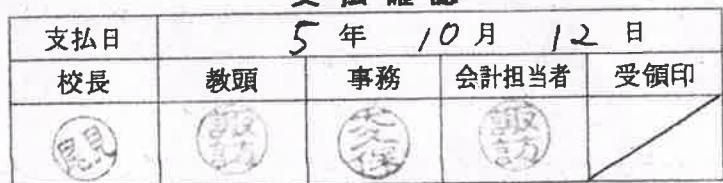 支払日 5年 10月 12日
校長 教頭 事務 会計担当者 受領印
諏訪 大久保 諏訪